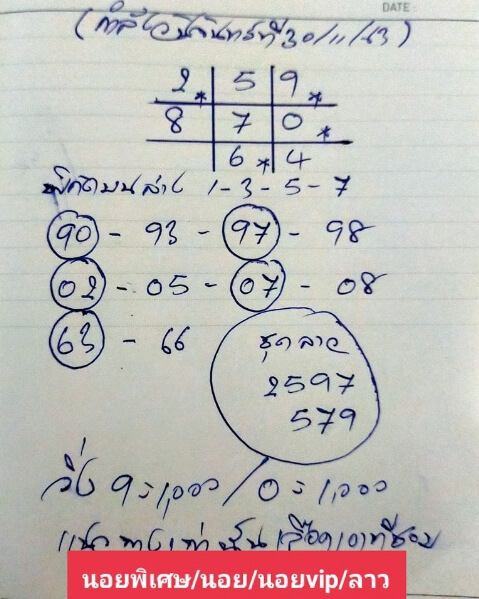 DATE
(กำลังวันจันทร์ที่ 30/11/63)
2* 5 9*
8 7 0*
6* 4
พิกัดบนล่าง 1-3-5-7
90 - 93 - 97 - 98
02 - 05 - 07 - 08
63 - 66
ชุดลาว
2597
579
วิ่ง 9=1,000 / 0=1,000
แนวทางเท่านั้นเลือกเอาที่ชอบ
นอยพิเศษ/นอย/นอยvip/ลาว